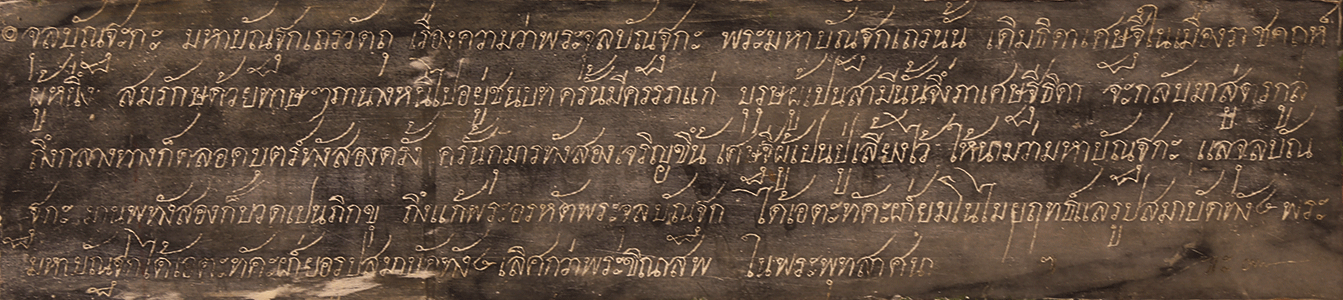 ๏ จุลบัณฐะกะ มหาบัณฐุกเถรวัตถุ เรื่องความว่าพระจุลบัณฐุกะ พระมหาบัณฐุกเถรนั้น เดิมธิดาเศษฐีในเมืองราชคฤห์
ผู้หนึ่ง สมรักษด้วยทาษ ๆ ภานางหนีไปอยู่ชนบท ครั้นมีครรภแก่ บุรุษผู้เปนสามีนั้นจึ่งภาเศษฐีธิดา จะกลับมาสู่ตระกูล
ถึ่งกลางทางก็คลอดบุตร์ทังสองครั้ง ครั้นกุมารทังสองเจริญขึ้น เศษฐีผู้เปนปู่เลี้ยงไว้ ให้นามว่ามหาบัณฐุกะ แลจุลบัณ
ฐุกะ ทังสองก็บวดเปนภิกขุ ถึงแก่พระอรหัต พระจุลบัณฐุก ได้เอตะทัคะ ในมยฤทธิแลรูปสมาบัดทัง ๔ พระ
มหาบัณฐุกได้เอตะทัคะ อรูปสมาบัดทัง ๔ เลิศกว่าพระขิณาสพ ในพระพุทสาศนา